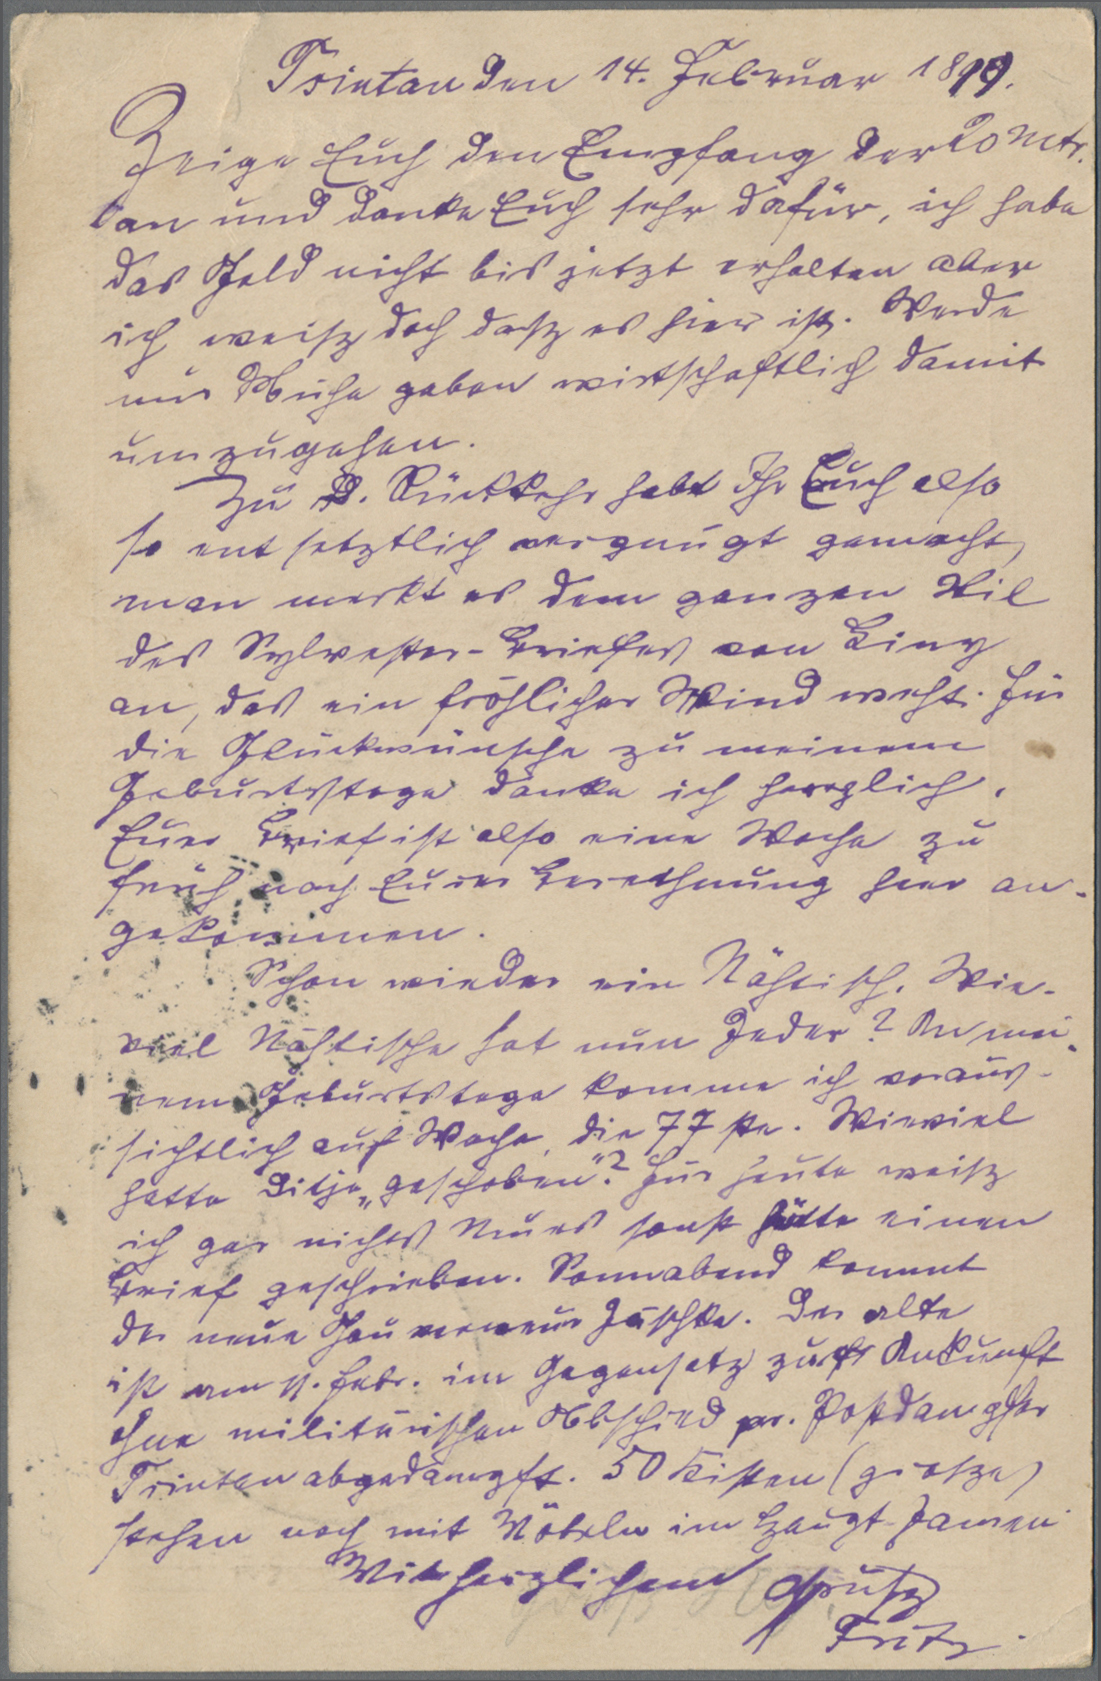 Tsintau den 14. Februar 1899.
Zeige Euch den Empfang der 20 Mk.
an und danke Euch sehr dafür, ich habe
das Geld nicht bis jetzt erhalten aber
ich weisz doch dasz es hier ist. Werde
mir Mühe geben wirtschaftlich damit
umzugehen.
Zu D. Rückkehr habt Ihr Euch also
so entsetztlich vergnügt gemacht,
man merkt es dem ganzen Stil
des Sylvester-Briefes von Liny
an, das ein fröhlicher Wind weht. Für
die Glückwünsche zu meinem
Geburtstage danke ich herzlich.
Euer Brief ist also eine Woche zu
früh nach Eurer Berechnung hier an-
gekommen.
Schon wieder ein Nähtisch. Wie-
viel Nähtische hat nun Jeder? An mei-
nem Geburtstage komme ich voraus-
sichtlich auf Wache, die 77 ste. Wieviel
hatte "geschoben"? Für heute weisz
ich gar nichts Neues sonst hätte einen
Brief geschrieben. Sonnabend kommt
der neue Gouverneur Jäschke. Der alte
ist am 11. Febr. im Gegensatz zur Ankunft
ohne militärischen Abschied pr. Postdampfer
Tsintau abgedampft. 50 Kisten (grosze)
stehen noch mit Möbeln im Haupt-Jamen
Mit herzlichem Grusz
Fritz.